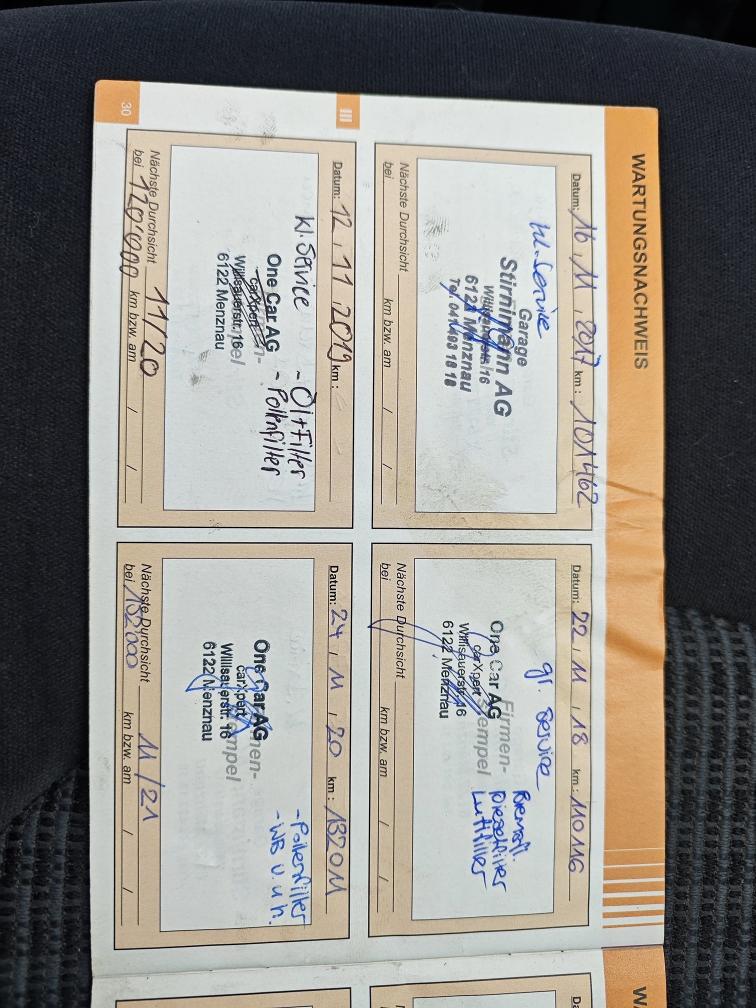 WARTUNGSNACHWEIS
Datum: 16 , 11 , 2017 km : 101462
kl. Service
Garage
Stirnimann AG
Willisauerstr. 16
6122 Menznau
Tel. 041 493 18 18
Nächste Durchsicht
bei km bzw. am / /
Datum: 22 , 11 , 18 km : 110116
gr. Service
Bremsfl.
Dieselfilter
Luftfilter
Firmen-
stempel
One Car AG
carXpert
Willisauerstr. 16
6122 Menznau
Nächste Durchsicht
bei km bzw. am / /
III
Datum: 12 , 11 , 2019 km :
kl. Service
- Öl+Filter
- Pollenfilter
One Car AG
carXpert
Willisauerstr. 16
6122 Menznau
Nächste Durchsicht 11/20
bei 120'000 km bzw. am / /
Datum: 24 , 11 , 20 km : 132011
- Pollenfilter
- WB v. u h.
One Car AG
carXpert
Willisauerstr. 16
6122 Menznau
Nächste Durchsicht 11/21
bei km bzw. am / /
30